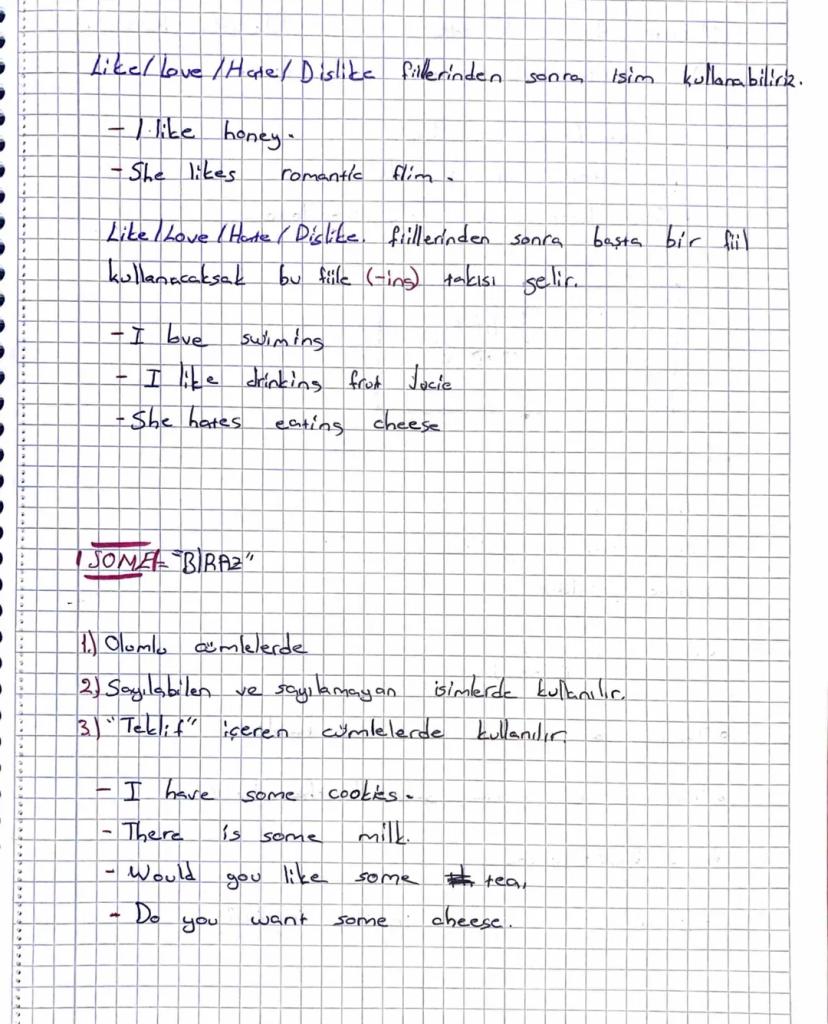 Like/Love/Hate/Dislike fiillerinden sonra isim kullanabiliriz.
- I like honey.
- She likes romantic flim.
Like/Love/Hate/Dislike. fiillerinden sonra başta bir fiil
kullanacaksak bu fiile (-ing) takısı gelir.
- I love swiming
- I like drinking frut Jucie
- She hates eating cheese
SOME = "BİRAZ"
1.) Olumlu cümlelerde
2) Sayılabilen ve sayılamayan isimlerde kullanılır.
3.) "Teklif" içeren cümlelerde kullanılır.
- I have some cookies.
- There is some milk.
- Would you like some tea,
- Do you want some cheese.